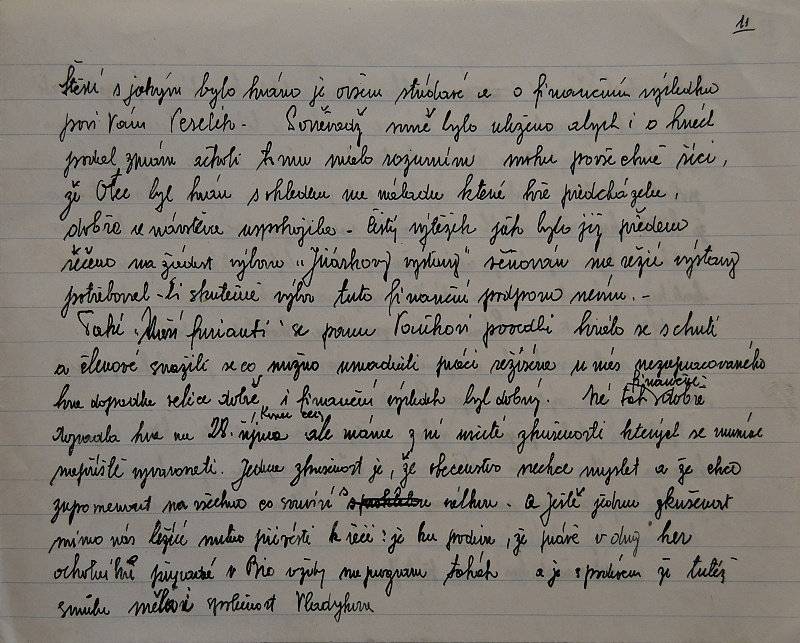 11
s jakým bylo hráno je ovšem střídavé a o finančním výsledku
poví Vám Veselík - Poněvadž mně bylo uloženo abych i o hnětl
podal zprávu ačkoli tomu málo rozumím mohu povšechně říci,
že Otec byl hrán s ohledem na náladu které hře předcházela,
dobře a návštěva uspokojila - čistý výtěžek jak bylo již předem
řečeno na žádost výboru „Jiráskovy výstavy" věnován na režii výstavy
potřeboval-li skutečně výbor tuto finanční podporu nevím. -
Také „Naši furianti" se panu Vaňkovi povedli hrálo se s chutí
a členové snažili se co možno usnadniti práci režiséra u nás nezapracovaného
hra dopadla velice dobře i finanční výsledek byl dobrý. Né tak finančně dobře
dopadla hra na 28. října Konec cesty ale máme z ní určité zkušenosti kterých se musíme
napříště vyvarovati. Jedna zkušenost je, že obecenstvo nechce myslet a že chce
zapomenout na všechno co souvisí s válkou. A ještě jednu zkušenost
mimo nás ležící nutno přivésti k řeči: je ku podivu, že právě v dny her
ochotnické připadá v Bio vždy na program tahák a je s podivem že tutéž
smůlu měla i společnost Vladykova